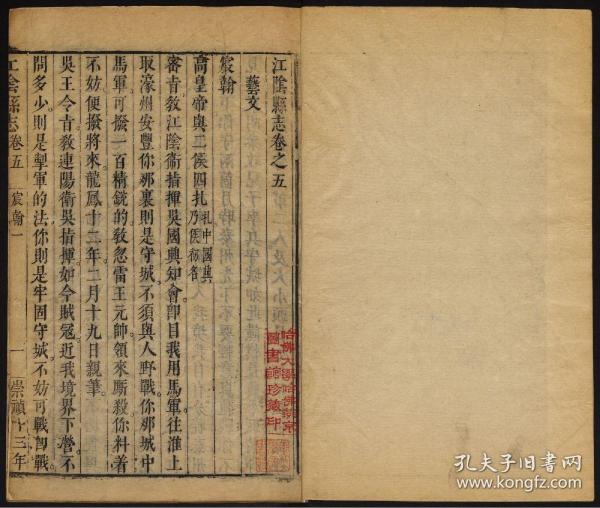 江陰縣志卷之五
藝文
宸翰
高皇帝與工侯四扎扎中國興乃侯初名
密旨教江陰衛指揮吳國興知會卽目我用馬軍往淮上
取濠州安豐你那裏則是守城不須與人野戰你那城中
馬軍可撥一百精銳的教忽雷王元帥領來厮殺你料着
不妨便撥將來龍鳳十二年二月十九日親筆
吳王令旨教連陽衛吳指揮如今賊寇近我境界下營不
問多少則是掣軍的法你則是牢固守城不妨可戰卽戰
江陰縣志卷五
宸翰一
一
崇禎十三年
哈佛大學哈佛燕京
圖書館珍藏印
孔夫子旧书网
www.kongfz.com